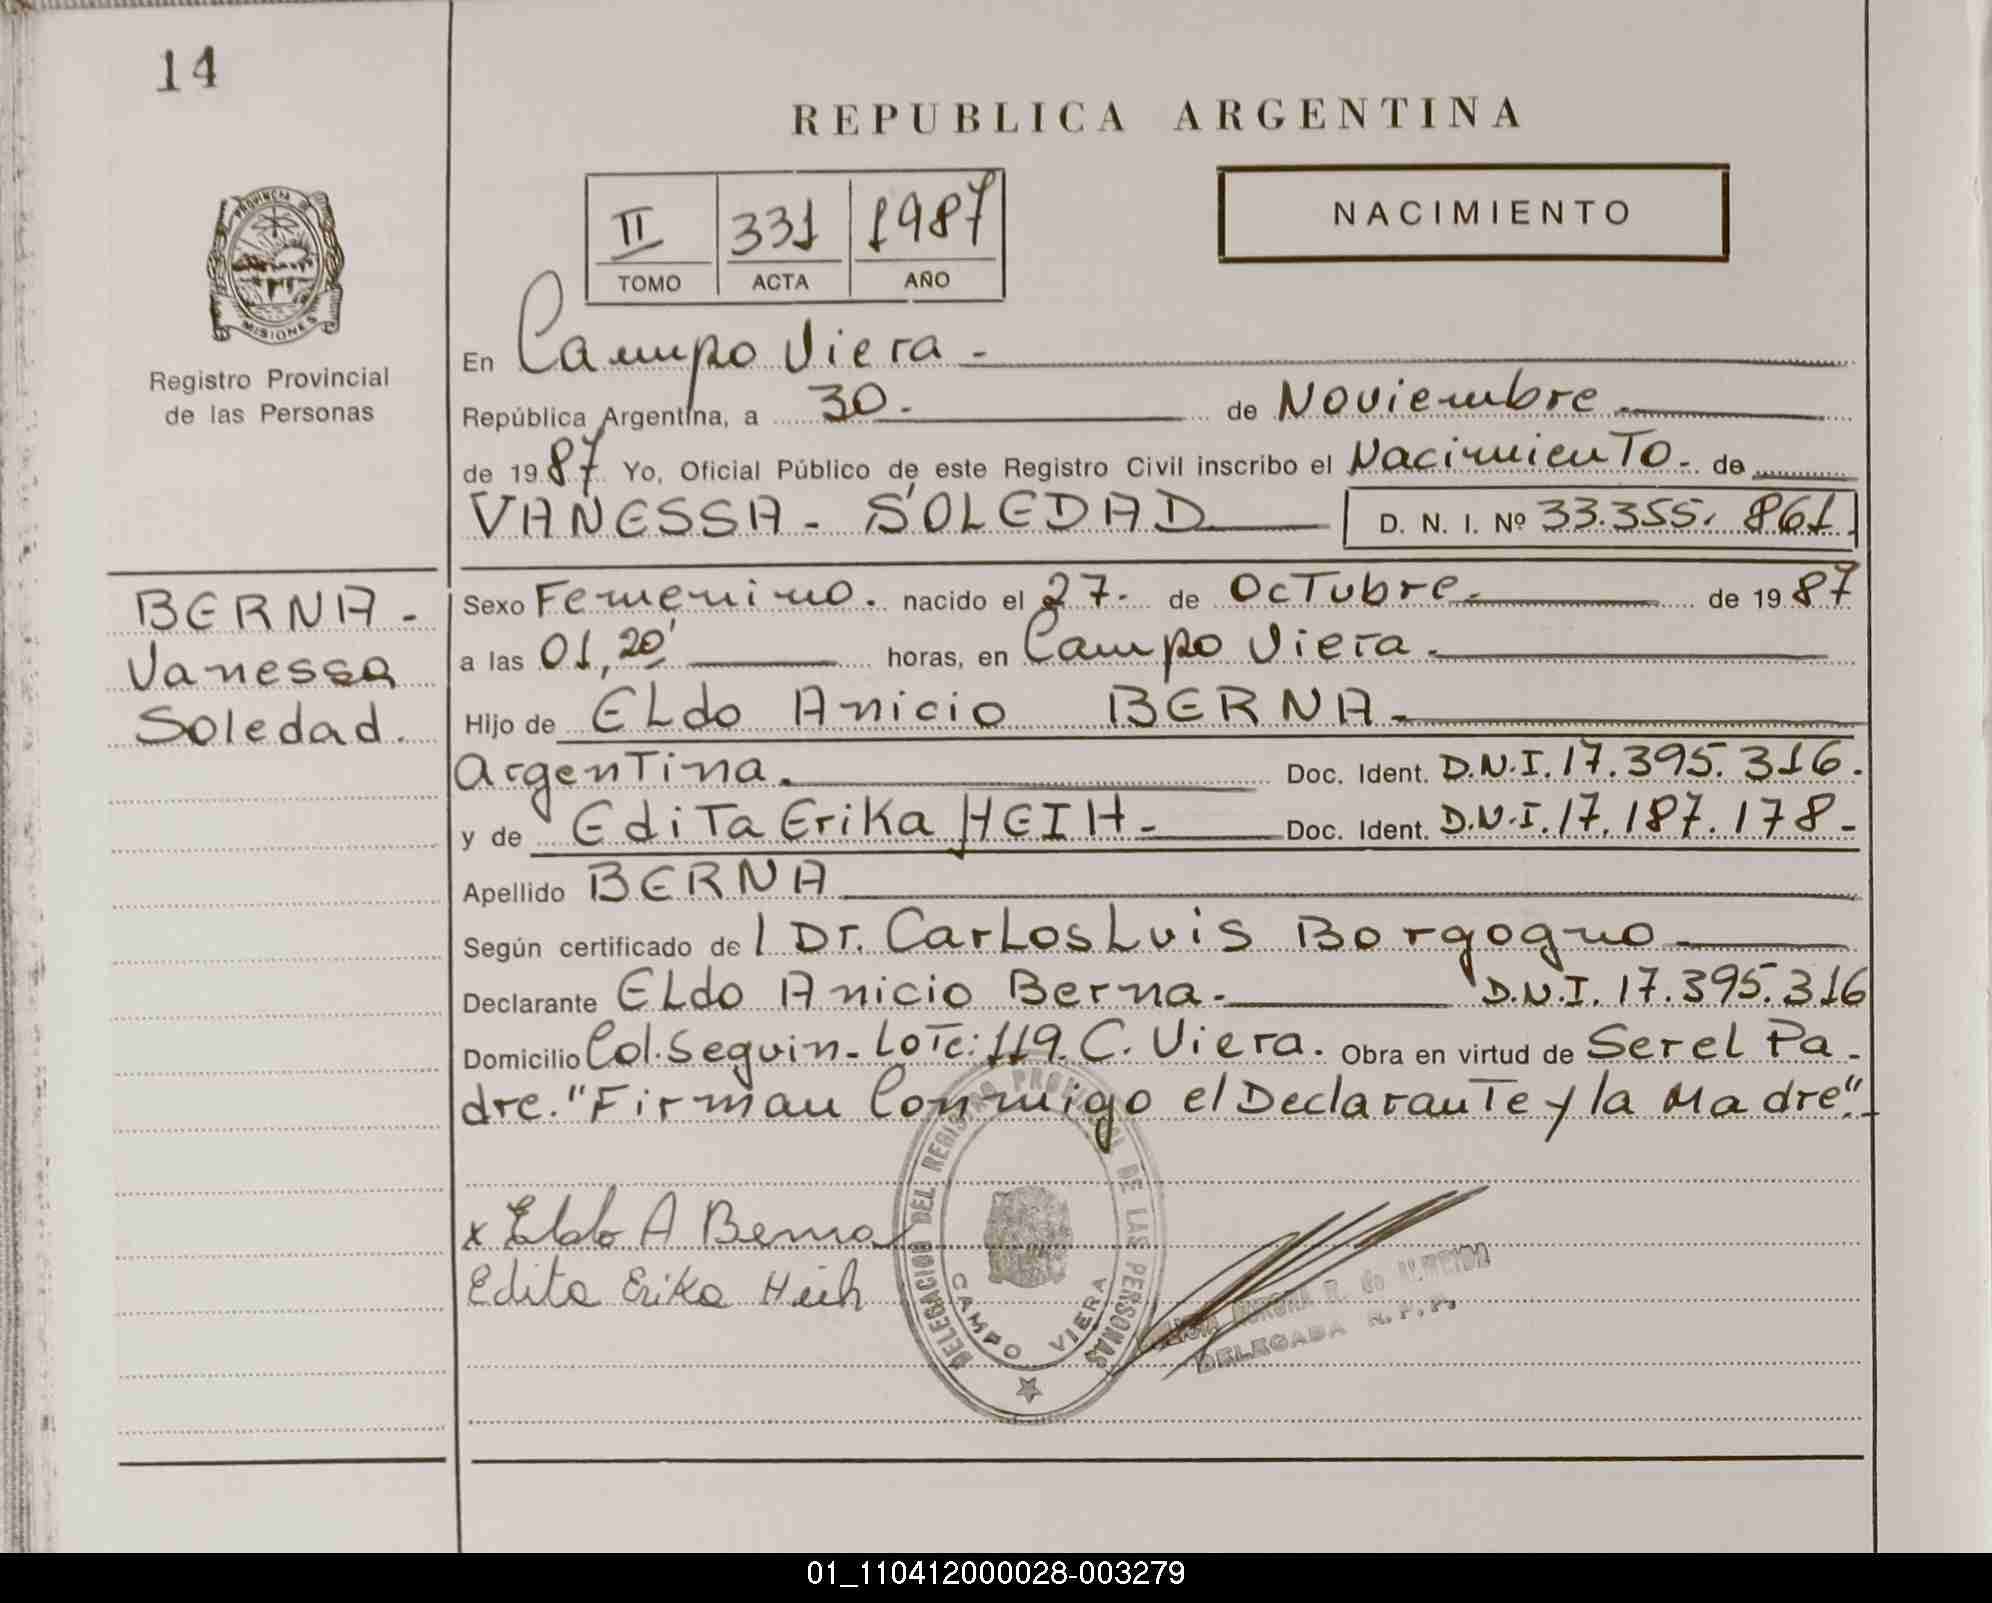 14
REPUBLICA ARGENTINA
PROVINCIA DE
MISIONES
Registro Provincial
de las Personas
II 331 1987
TOMO ACTA AÑO
NACIMIENTO
En Campo Viera -
República Argentina, a 30. de Noviembre.
de 1987. Yo, Oficial Público de este Registro Civil inscribo el Nacimiento. de
VANESSA - SOLEDAD D. N. I. Nº 33.355. 861.
BERNA -
Vanessa
Soledad.
Sexo Femenino. nacido el 27. de Octubre. de 1987
a las 01,20' horas, en Campo Viera.
Hijo de Eldo Anicio BERNA.
Argentina. Doc. Ident. D.N.I. 17.395.316.
y de Edita Erika HEIH - Doc. Ident. D.N.I. 17.187.178 -
Apellido BERNA
Según certificado de l Dr. Carlos Luis Borgogno
Declarante Eldo Anicio Berna. D.N.I. 17.395.316
Domicilio Col. Seguin - Lote: 119. C. Viera. Obra en virtud de Ser el Pa -
dre. "Firman Conmigo el Declarante y la Madre".
x Eldo A Berna
Edita Erika Heih
DELEGACION DEL REGISTRO PROVINCIAL DE LAS PERSONAS
CAMPO VIERA
AURORA R. de ALMEIDA
DELEGADA R. P. P.
01_110412000028-003279